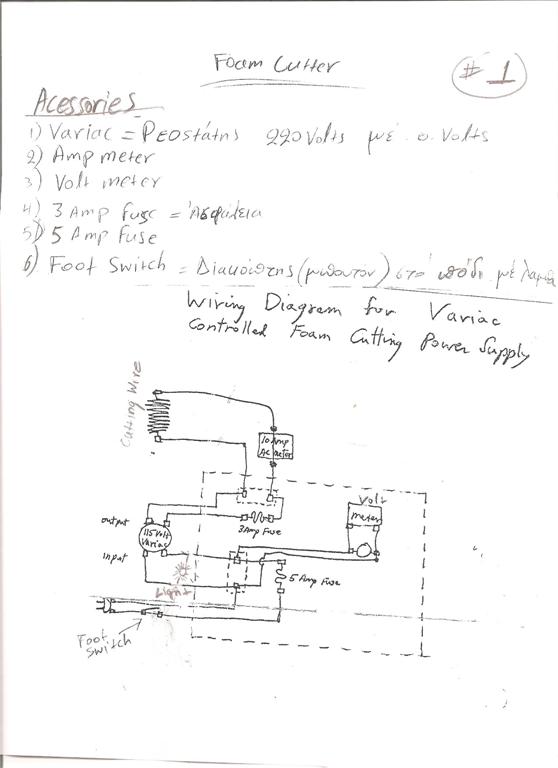 Foam Cutter
# 1
Acessories
1) Variac = Ρεοστάτης 220 Volts μέ 0. Volts
2) Amp meter
3) Volt meter
4) 3 Amp fuse = Ἀσφάλεια
5) 5 Amp Fuse
6) Foot Switch = Διακόπτης (μπουτον) στό πόδι μέ λαμπα
Wiring Diagram for Variac
Controlled Foam Cutting Power Supply
Cutting Wire
10 Amp
AC meter
Volt
meter
output
3 Amp Fuse
115 Volt
Variac
input
Light
5 Amp Fuse
Foot
Switch